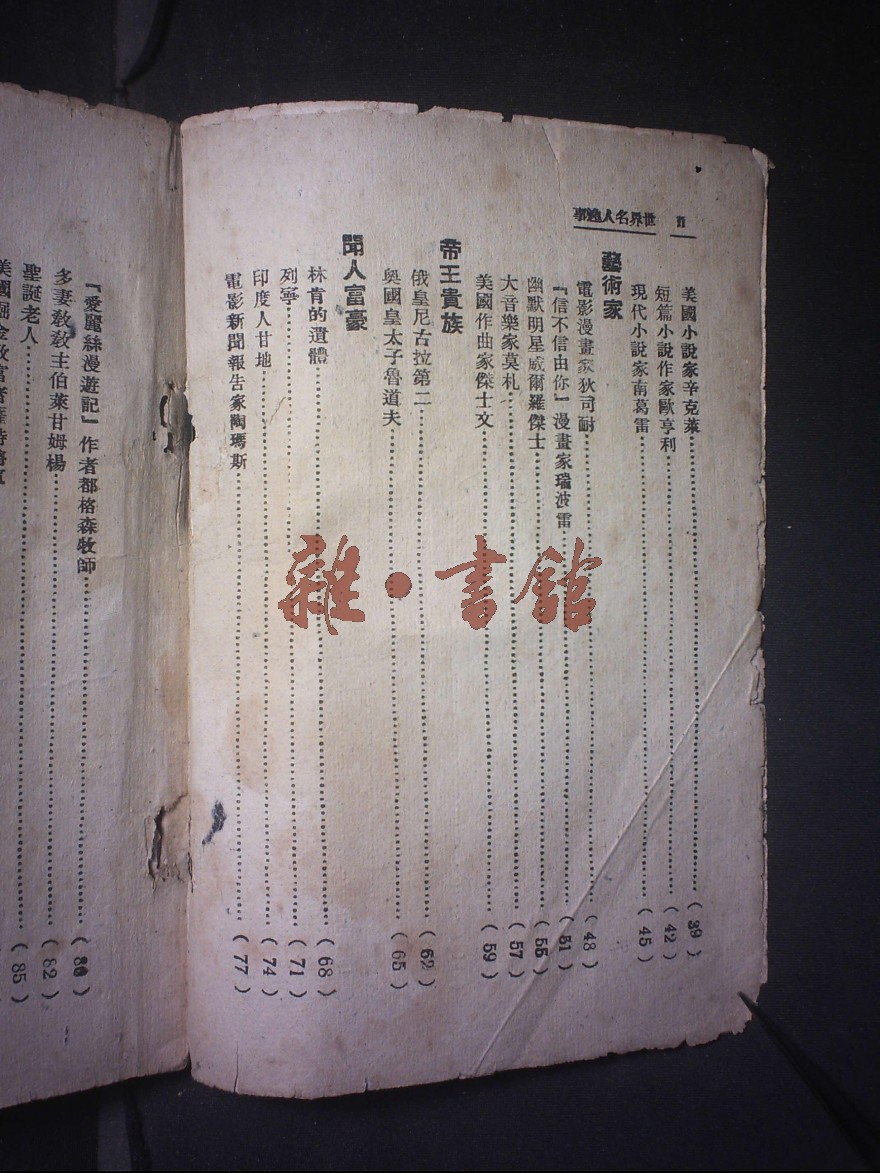 世界名人逸事
美國小說家辛克萊……(39)
短篇小說作家歐亨利……(42)
現代小說家南葛雷……(45)
藝術家
電影漫畫家狄司耐……(48)
『信不信由你』漫畫家瑞波雷……(51)
幽默明星威爾羅傑士……(55)
大音樂家莫札……(57)
美國作曲家傑士文……(59)
帝王貴族
俄皇尼古拉第二……(62)
奧國皇太子魯道夫……(65)
聞人富豪
林肯的遺體……(68)
列寧……(71)
印度人甘地……(74)
電影新聞報告家陶瑪斯……(77)
『愛麗絲漫遊記』作者都格森牧師……(80)
多妻教教主伯萊甘姆楊……(82)
聖誕老人……(85)
美國掘金致富者
雜·書館